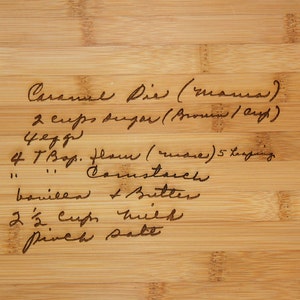 Caramel Pie (Mama)
2 cups sugar (Brown 1 Cup)
4 eggs
4 TBsp. flour (more) 5 heaping
" " Cornstarch
Vanilla & Butter
2 ½ cups milk
Pinch salt